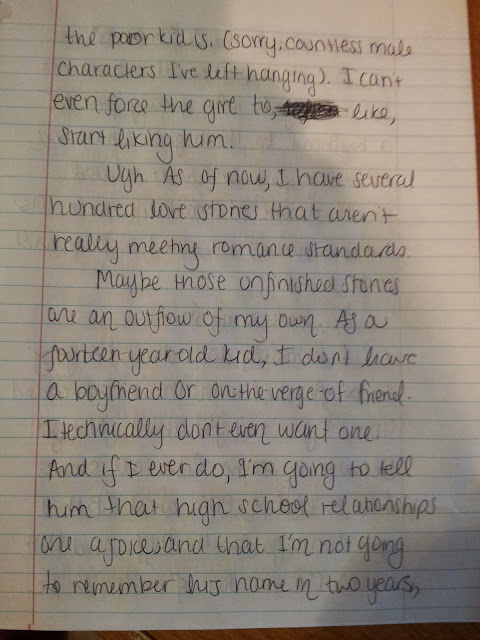 the poor kid is. (sorry, countless male
characters I've left hanging). I can't
even force the girl to, like,
start liking him.
Ugh. As of now, I have several
hundred love stories that aren't
really meeting romance standards.
Maybe those unfinished stories
are an outflow of my own. As a
fourteen-year old kid, I don't have
a boyfriend or on-the-verge-of friend.
I technically don't even want one.
And if I ever do, I'm going to tell
him that high school relationships
are a joke, and that I'm not going
to remember his name in two years,